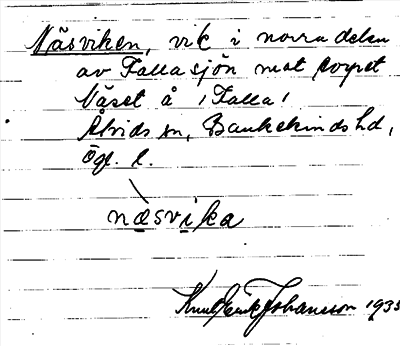 Näsviken, vik i norra delen
av Fallasjön mot torpet
Näset å, Falla!
Åtvids sn, Bankekinds hd,
Ögl. l.
næsvika
Knut Erik Johansson 1935